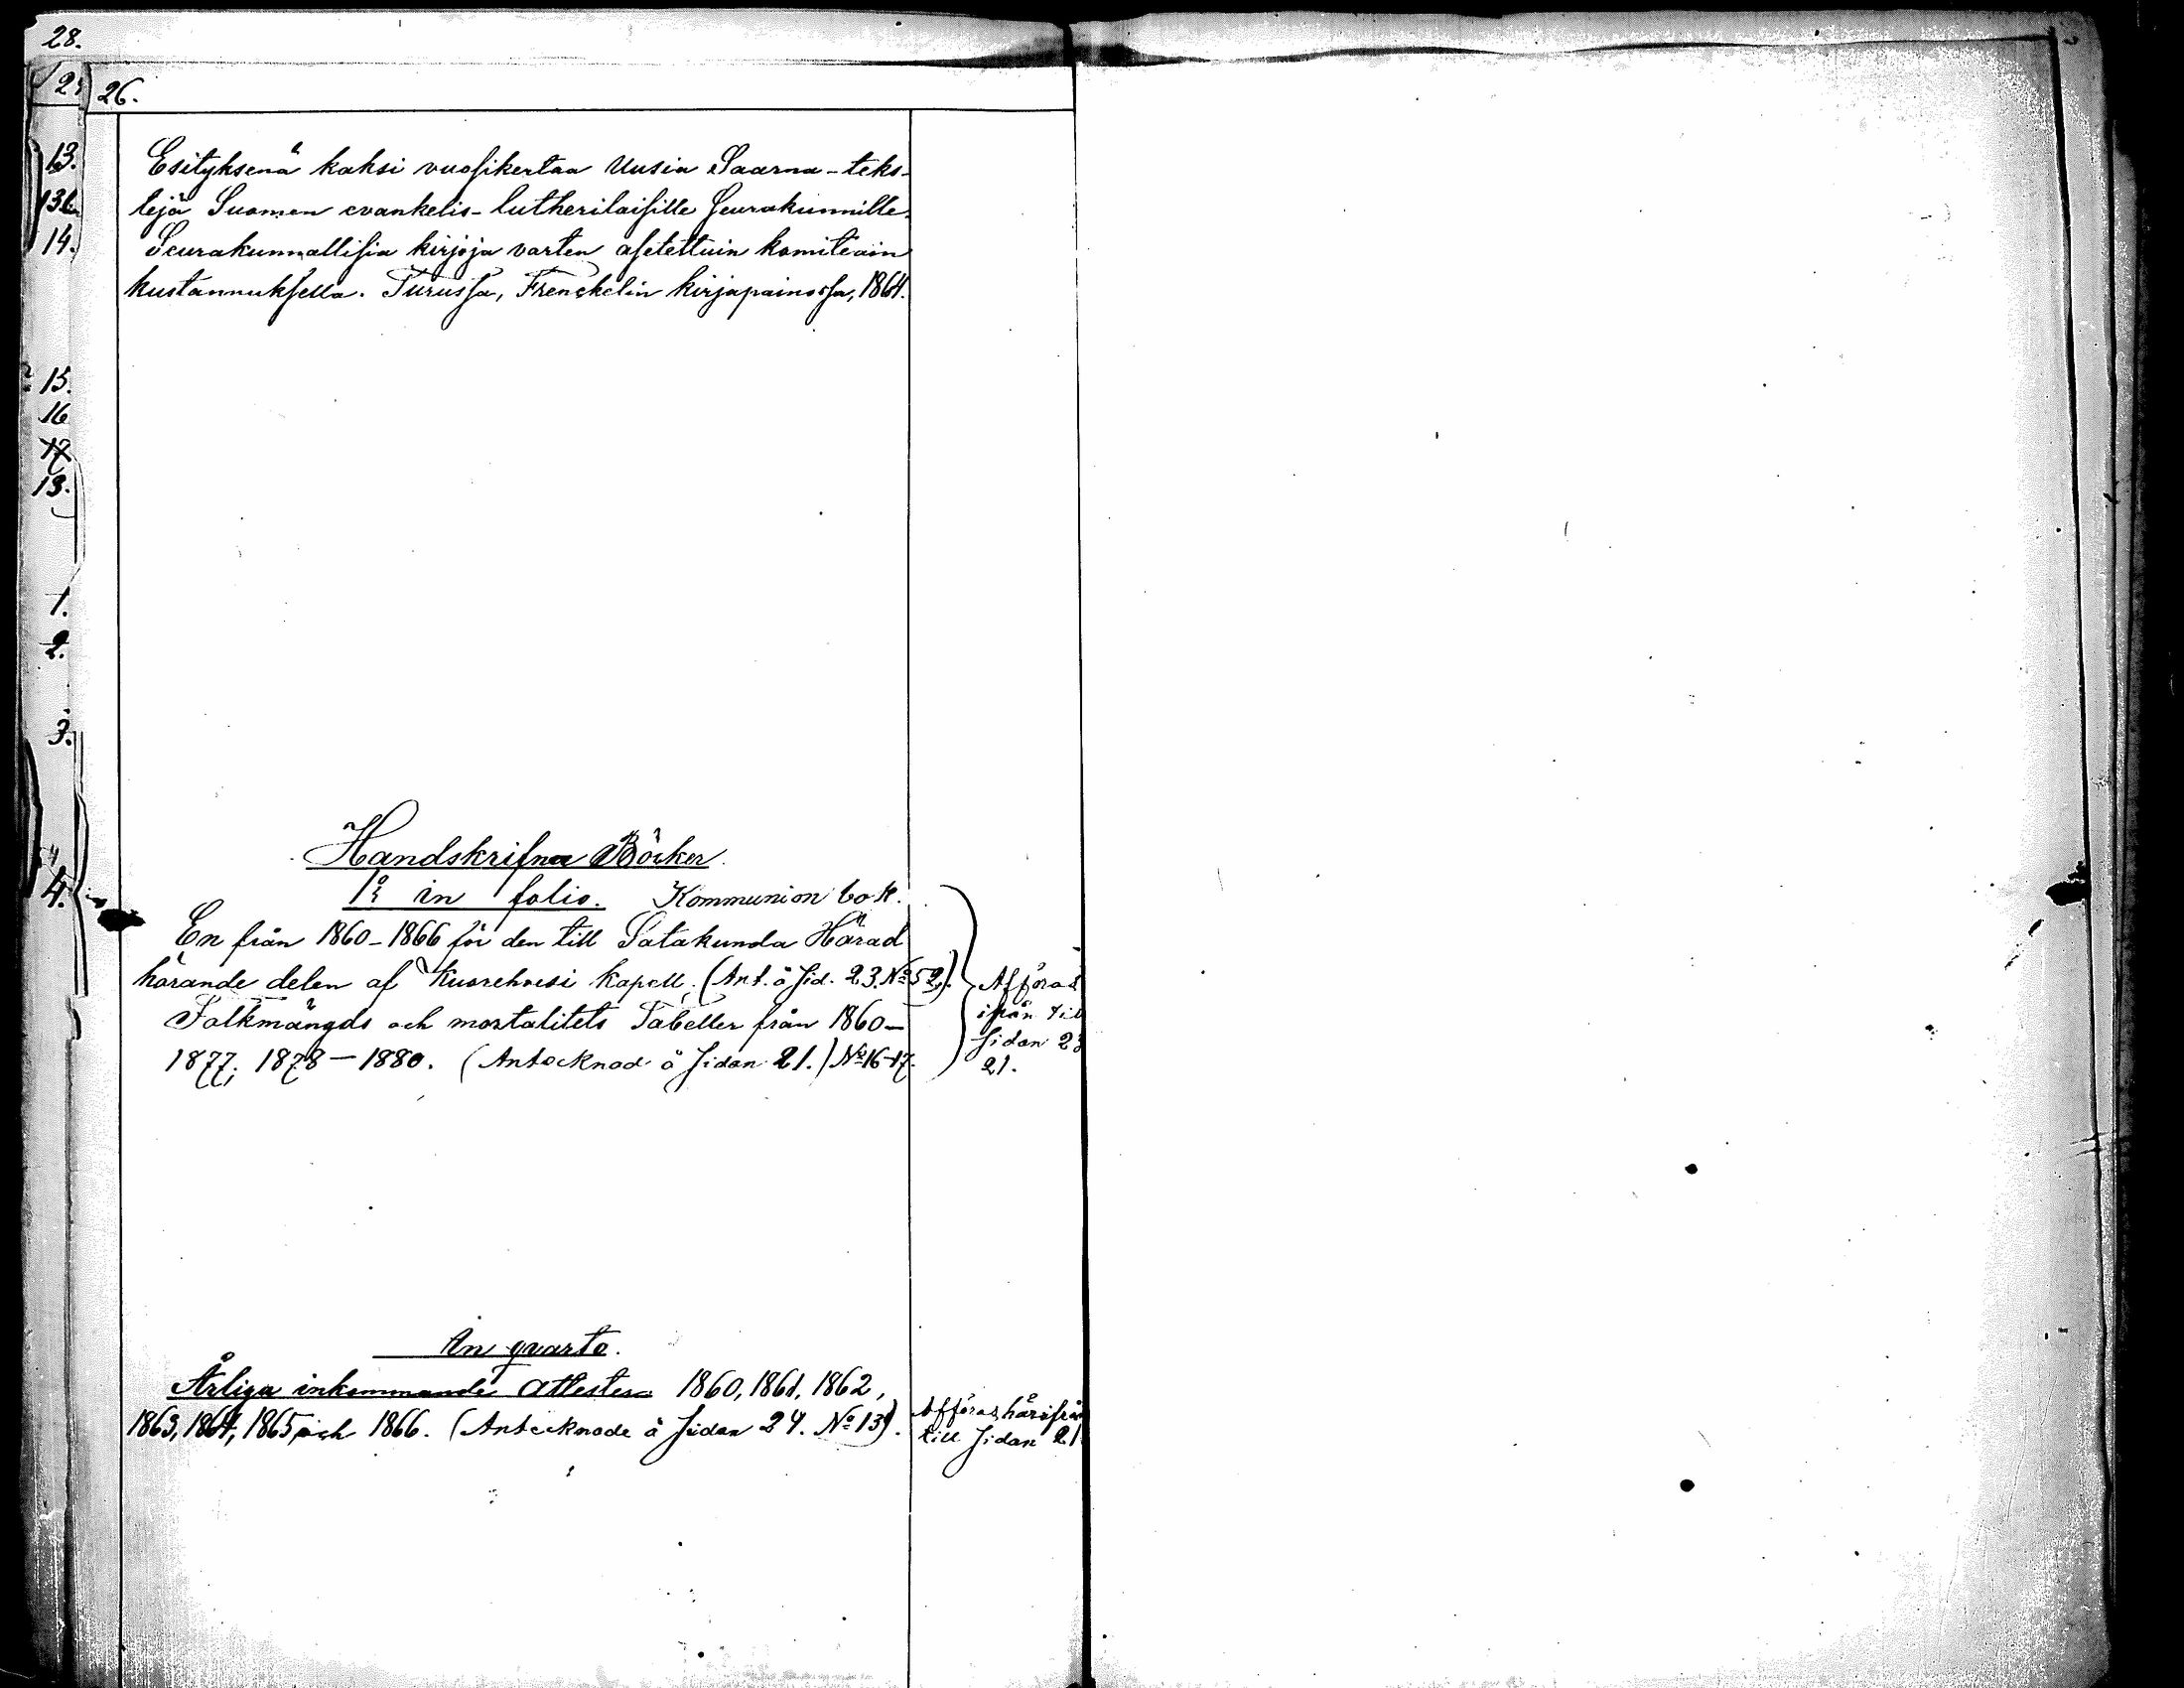 28.
26.
13.
136.
14.
15.
16
17
13.
1.
2.
3.
4.
Esityksenä kaksi vuosikertaa Uusia Saarna-teks-
tejä Suomen evankelis-lutherilaisille Seurakunnille.
Seurakunnallisia kirjoja varten asetettuin komiteain
kustannuksella. Turussa, Frenckelin kirjapainossa, 1864.
Handskrifna Böcker.
1:o in folio. Kommunion bok.
En från 1860-1866 för den till Satakunda Härad
hörande delen af Kuorehvesi kapell. (Ant. å sid. 23. No 52).
Folkmängds och mortalitets Tabeller från 1860-
1877; 1878-1880. (Antecknad å sidan 21.) No 16-17.
Afföras
ifrån till
sidan 23
21.
In qvarto.
Årliga inkommande attester 1860, 1861, 1862,
1863, 1864, 1865 och 1866. (Antecknade å sidan 24. No 13).
Afföras härifrån
till sidan 21